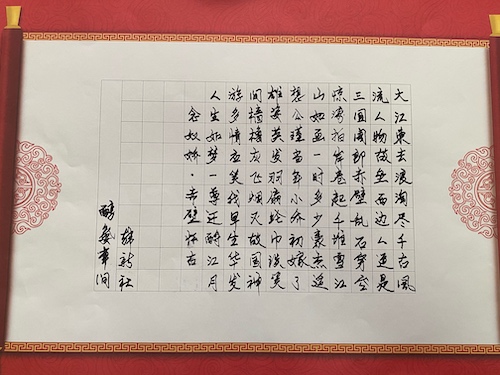 大江東去浪淘尽千古風
流人物故垒西边人道是
三国周郎赤壁乱石穿空
惊涛拍岸卷起千堆雪江
山如画一时多少豪杰遥
想公瑾当年小乔初嫁了
雄姿英发羽扇纶巾谈笑
间樯橹灰飞烟灭故国神
游多情应笑我早生华发
人生如梦一尊还酹江月
念奴娇·赤壁怀古
新社